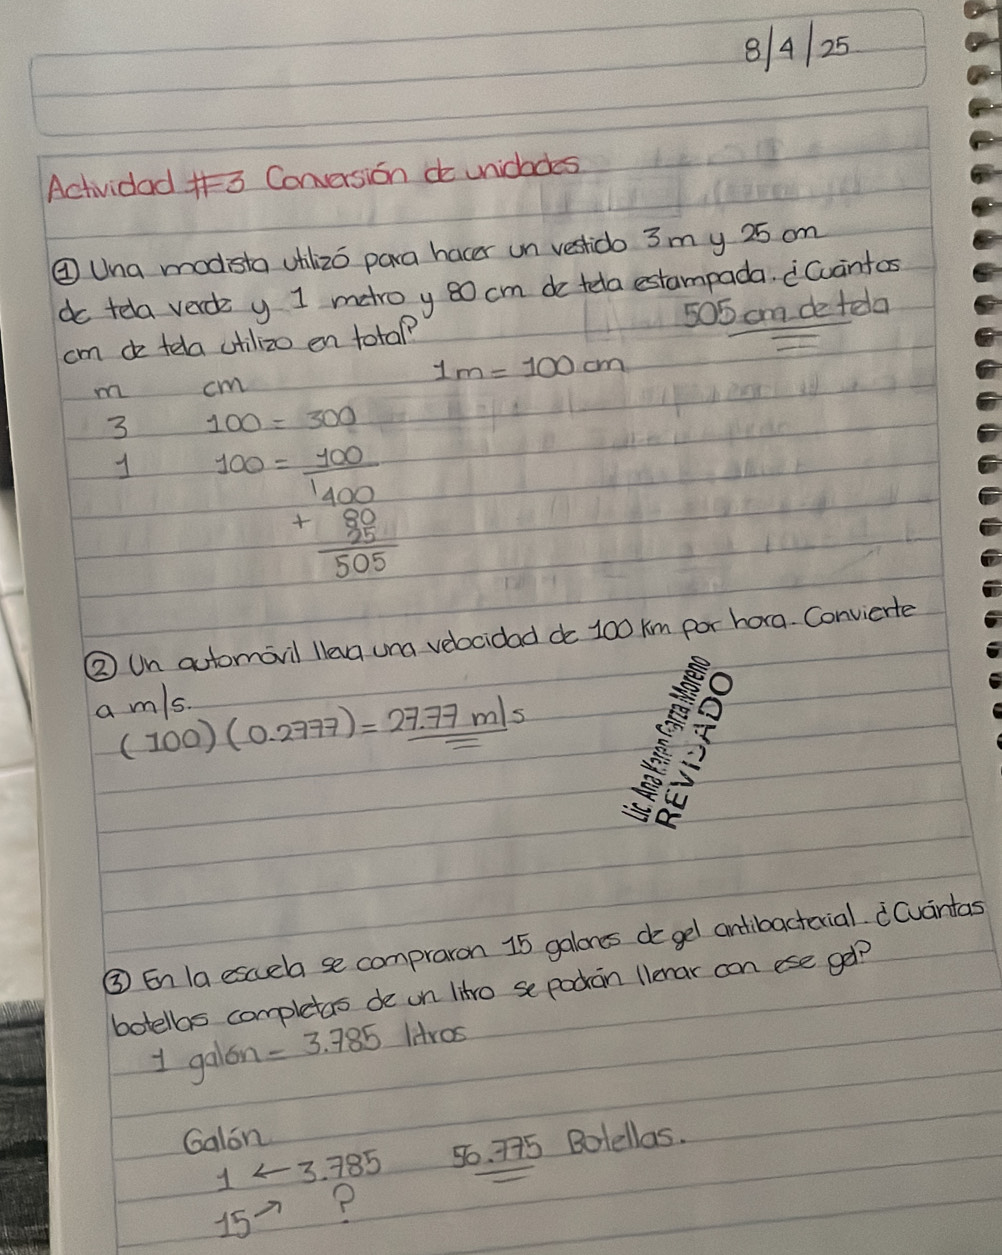 8/4/25
Actividad #3 Conversión de unidades
① Una modista utilizó para hacer un vestido 3m y 25 cm
de tela verde y 1 metro y 80 cm de tela estampada. ¿Cuántos
cm de tela utilizo en total?
505 cm de tela
m cm 1m = 100 cm
3 100 = 300
1 100 = 100
1400
+ 80
25
505
② Un automóvil lleva una velocidad de 100 km por hora. Convierte
a m/s.
(100)(0.2777) = 27.77 m/s
Lic Ana Karen Garza Moreno
REVISADO
③ En la escuela se compraron 15 galones de gel antibacterial. ¿Cuántas
botellas completas de un litro se podrán llenar con ese gel?
1 galón = 3.785 litros
Galón
1 ← 3.785 56.775 Botellas.
15 → ?